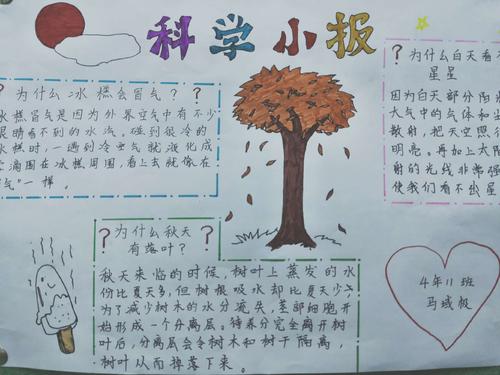 科学小报
? 为什么冰糕会冒气? ?
冰糕冒气是因为外界空气中有不少
眼睛看不到的水汽。碰到很冷的
冰糕时,一遇到冷空气就液化成
小滴围在冰糕周围,看上去就像在
气"一样。
? 为什么秋天 ?
有落叶?
秋天来临的时候,树叶上蒸发的水
份比夏天多,但树根吸水却比夏天少,
为了减少树木的水分流失,茎部细胞开
始形成一个分离层。待养分完全离开树
叶后,分离层会令树木和树干隔离,
树叶从而掉落下来。
? 为什么白天看不
星星
因为白天部分阳
大气中的气体和
散射,把天空照
明亮。再加上太阳
射的光线非常强
使我们看不出星
4年11班